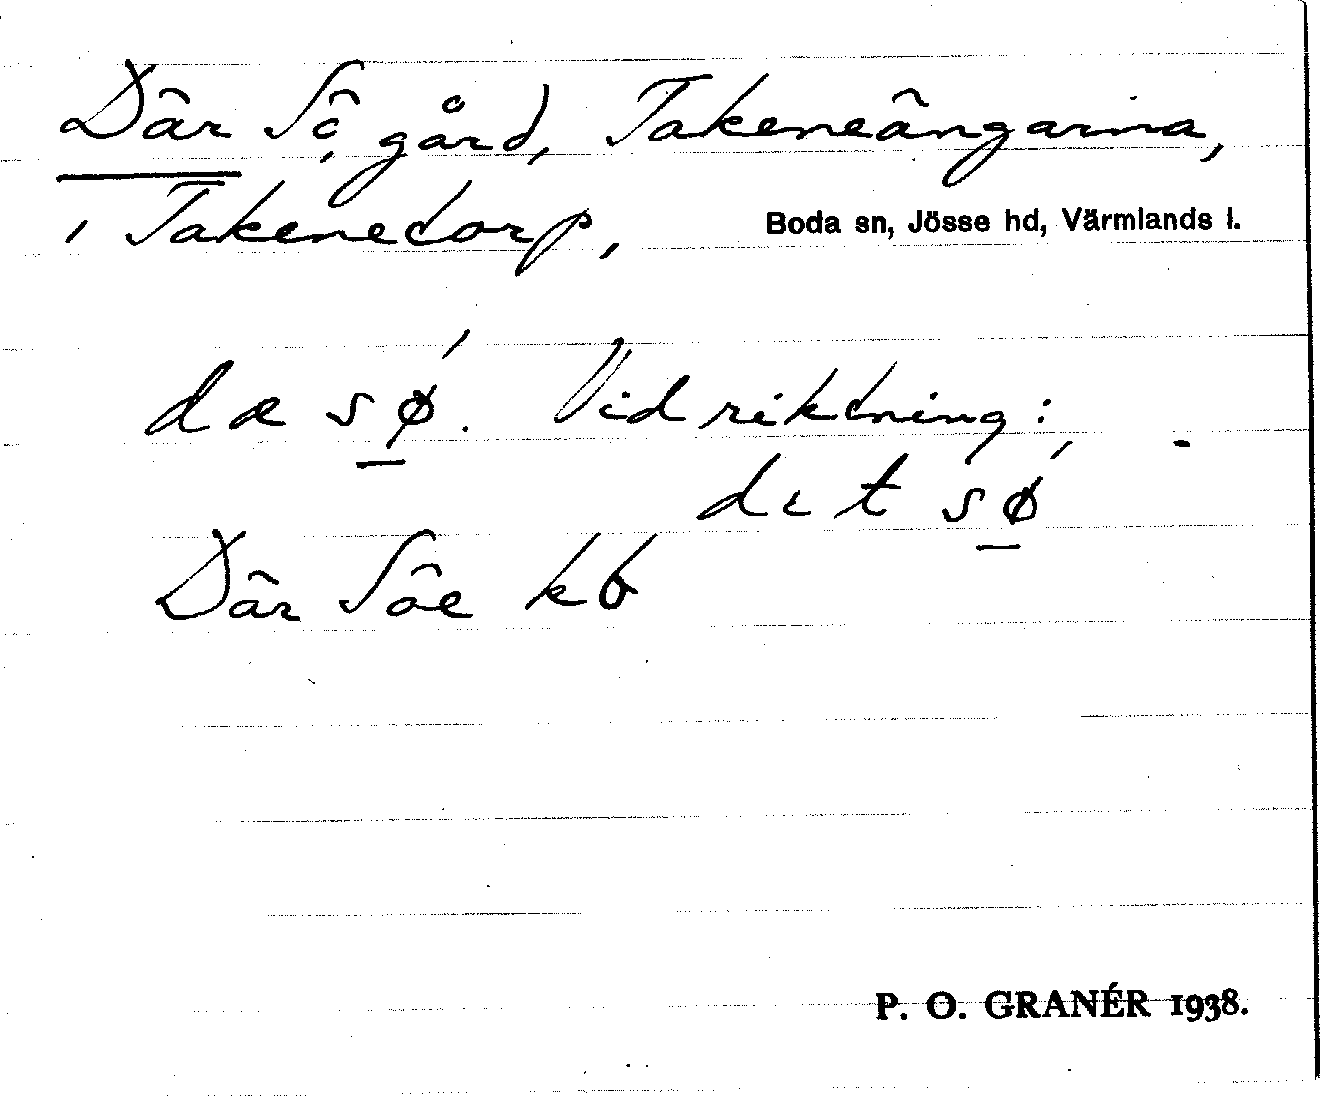 Där Sö, gård, Takeneängarna,
i Takenetorp, Boda sn, Jösse hd, Värmlands l.
dæ sø. Vid riktning:
dit sø
Där Söe kb
P. O. GRANÉR 1938.